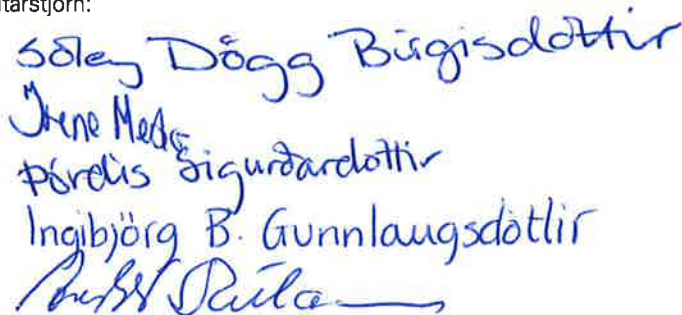 tarstjórn:
Sóley Dögg Birgisdóttir
Irene Meds
Þórdís Sigurðardóttir
Ingibjörg B. Gunnlaugsdóttir